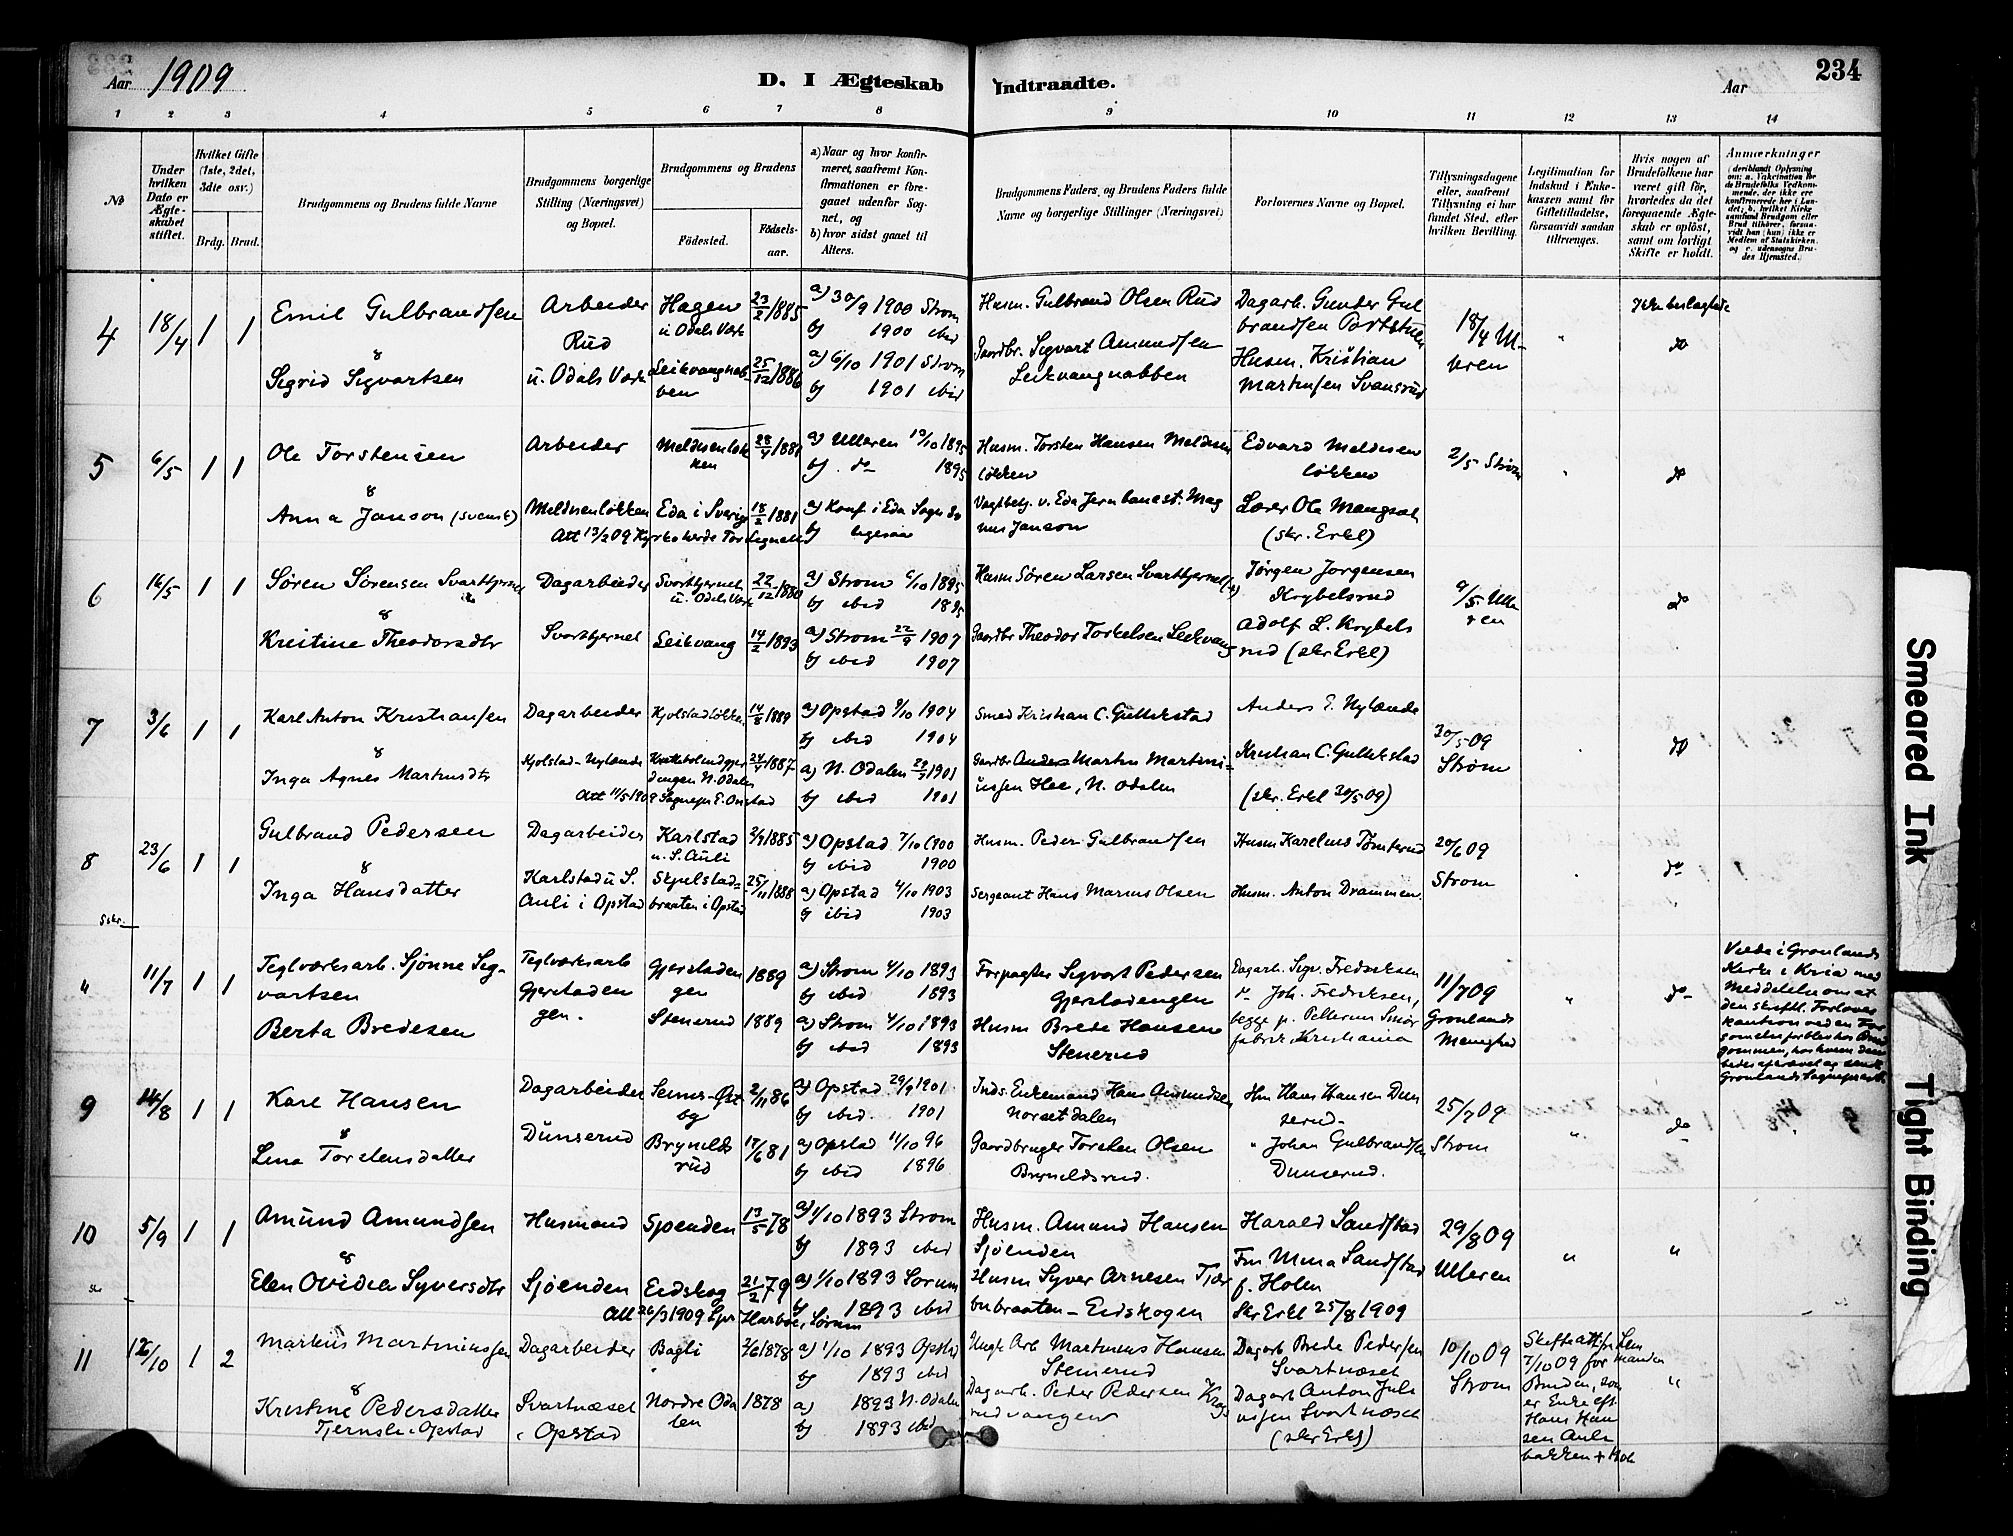 Aar 1909
D. I Ægteskab Indtraadte.
Aar
234
1 2 3 4 5 6 7 8 9 10 11 12 13 14
No
Under hvilken Dato er Ægteskabet stiftet.
Hvilket Gifte (1ste, 2det, 3die osv.)
Brdg. Brud.
Brudgommens og Brudens fulde Navne
Brudgommens borgerlige Stilling (Næringsvei) og Bopæl.
Brudgommens og Brudens
Födested.
Födselsaar.
a) Naar og hvor konfirmeret, saafremt Konfirmationen er foregaaet udenfor Sognet, og
b) hvor sidst gaaet til Alters.
Brudgommens Faders og Brudens Faders fulde Navne og borgerlige Stillinger (Næringsvei)
Forlovernes Navne og Bopæl.
Tillysningsdagene eller, saafremt Tillysning ei har fundet Sted, efter hvilken Bevilling.
Legitimation for Indskud i Enkekassen samt for Giftetilladelse, forsaavidt saadan tiltrænges.
Hvis nogen af Brudefolkene har været gift før, hvorledes da det foregaaende Ægteskab er opløst, samt om lovligt Skifte er holdt.
Anmærkninger
4 18/4 1 1
Emil Gulbrandsen
&
Sigrid Sigvartsen
Arbeider
Rud
u. Odals Værk
Hagen
u Odals Værk
23/2 1885
Leikvangnabben
25/12 1886
a) 30/9 1900 Strøm
b) 1900 ibid
a) 6/10 1901 Strøm
b) 1901 ibid
Husm. Gulbrand Olsen Rud
Gaardbr. Sigvart Amundsen
Leikvangnabben
Dagarb. Gunder Gulbrandsen
Husm. Kristian
Martinsen Svansrud
18/4 Ulleren
Ikke beslægtede
do
5 6/5 1 1
Ole Torstensen
&
Anna Janson (svensk)
Arbeider
Meldsenløkken
28/4 1881
Eda i Sverige
18/2 1881
a) Ulleren 19/10 1895
b) do 1895
a) Konf i Eda Sogn
b) ligesaa
Husm. Torsten Hansen Meldsenløkken
Vagtbetj. v. Eda Jernbanest. Magnus Janson
Edvard Meldsenløkken
Lærer Ole Mangset
(skr. Erkl)
2/5 Strøm
do
6 16/5 1 1
Søren Sørensen Svarttjernet
&
Kristine Theodorsdtr
Dagarbeider
Svarttjernet
u. Odals Værk
22/12 1880
Leikvang
14/2 1893
a) Strøm 6/10 1895
b) ibid 1895
a) Strøm 22/9 1907
b) ibid 1907
Husm Søren Larsen Svarttjernet
Gaardbr Theodor Torkelsen Leikvang
Jørgen Jorgensen
Krybelsrud
Adolf L. Krybelsrud (skr Erkl)
9/5 Ulleren
do
7 3/6 1 1
Karl Anton Kristiansen
&
Inga Agnes Martinsdtr
Dagarbeider
Kjolstad-Nylænde
Kjolstadløkken
14/8 1889
24/4 1887
Att 11/5 1909 Sognepr E. Onstad
a) Opstad 9/10 1904
b) ibid 1904
a) N. Odalen 29/9 1901
b) ibid 1901
Smed Kristian C. Gullikstad
Gaardbr Martin Martiniussen Hee, N. Odalen
Anders E. Nylænde
Kristian C. Gullikstad
(skr. Erkl 30/5 09)
30/5 09
Strøm
do
8 23/6 1 1
Gulbrand Pedersen
&
Inga Hansdatter
Dagarbeider
Karlstad u. S.
Auli i Opstad
Karlstad
u. S. Auli
2/9 1885
Skjulstadbraaten i Opstad
25/11 1888
a) Opstad 7/10 1900
b) ibid 1900
a) Opstad 4/10 1903
b) ibid 1903
Husm. Peder Gulbrandsen
Sergeant Hans Marius Olsen
Husm Karelius Tomterud
Husm. Anton Drammen.
20/6 09
Strøm
do
" 11/7 1 1
Teglværksarb. Sjønne Sigvartsen
Berta Bredesen
Teglværksarb
Gjerstadengen.
Gjerstadengen
1889
Stenerud 1889
a) Strøm 4/10 1893
b) ibid 1893
a) Strøm 4/10 1893
b) ibid 1893
Forpagter Sigvart Pedersen
Gjerstadengen
Husm Brede Hansen
Stenerud
Dagarb. Sigv. Fredriksen
do Joh. Fredriksen,
begge p. Pellerins Smørfabrik, Kristiania
11/7 09
Grønlands
Menighed
"
do
Viede i Grønlands
Kirke i Kria med
Meddelelse om at
den skriftl. Forlover
9 14/8 1 1
Karl Hansen
&
Lina Torstensdatter
Dagarbeider
Dunserud
2/11 86
Bryneldsrud
17/6 81
a) Opstad 29/9 1901
b) ibid. 1901
a) Opstad 11/10 96
b) ibid 1896
Inds. Enkemand Hans Amundsen
Norsetdalen
Gaardbruger Torsten Olsen
Bryneldsrud.
Hm Hans Hansen Dunserud
" Johan Gulbrandsen
Dunserud.
25/7 09
Strøm
"
do
10 5/9 1 1
Amund Amundsen
&
Elen Ovidia Syversdtr
Husmand
Sjøenden
Sjøenden
13/5 78
Eidskog 21/2 79
Att 26/3 1909 Spr Harboe, Sørum
a) 1/10 1893 Strøm
b) 1893 ibid
a) 1/10 1893 Sørum
b) 1893 ibid
Husm. Amund Hansen
Sjøenden
Husm Syver Arnesen Tjærbubraaten - Eidskogen
Harald Sandstad
Fru Mina Sandstad
f. Holen
Skr Erkl 25/8 1909
29/8 09
Ulleren
"
"
11 12/10 1 2
Markus Martiniussen
&
Kristine Pedersdatter
Tjernsli, Opstad
Dagarbeider
Svartnæset
i Opstad
Bagli
2/6 1878
Nordre Odalen
1878
a) 1/10 1893 Opstad
b) 1893 ibid
a) 1893 N. Odalen
b) 1893 ibid
Ungk Arb Martinius Hansen
Stenerud
Dagarb. Peder Pedersen
Dagarb Brede Pedersen
Svartnæset
Dagarb Anton Juliussen Svartnæset
(skr Erkl)
10/10 09
Strøm
Skifteatt fr Lensmanden
7/10 09 for
Bruden, som
er Enke eft
Hans Hansen Aulibakken
"
Smeared Ink
Tight Binding